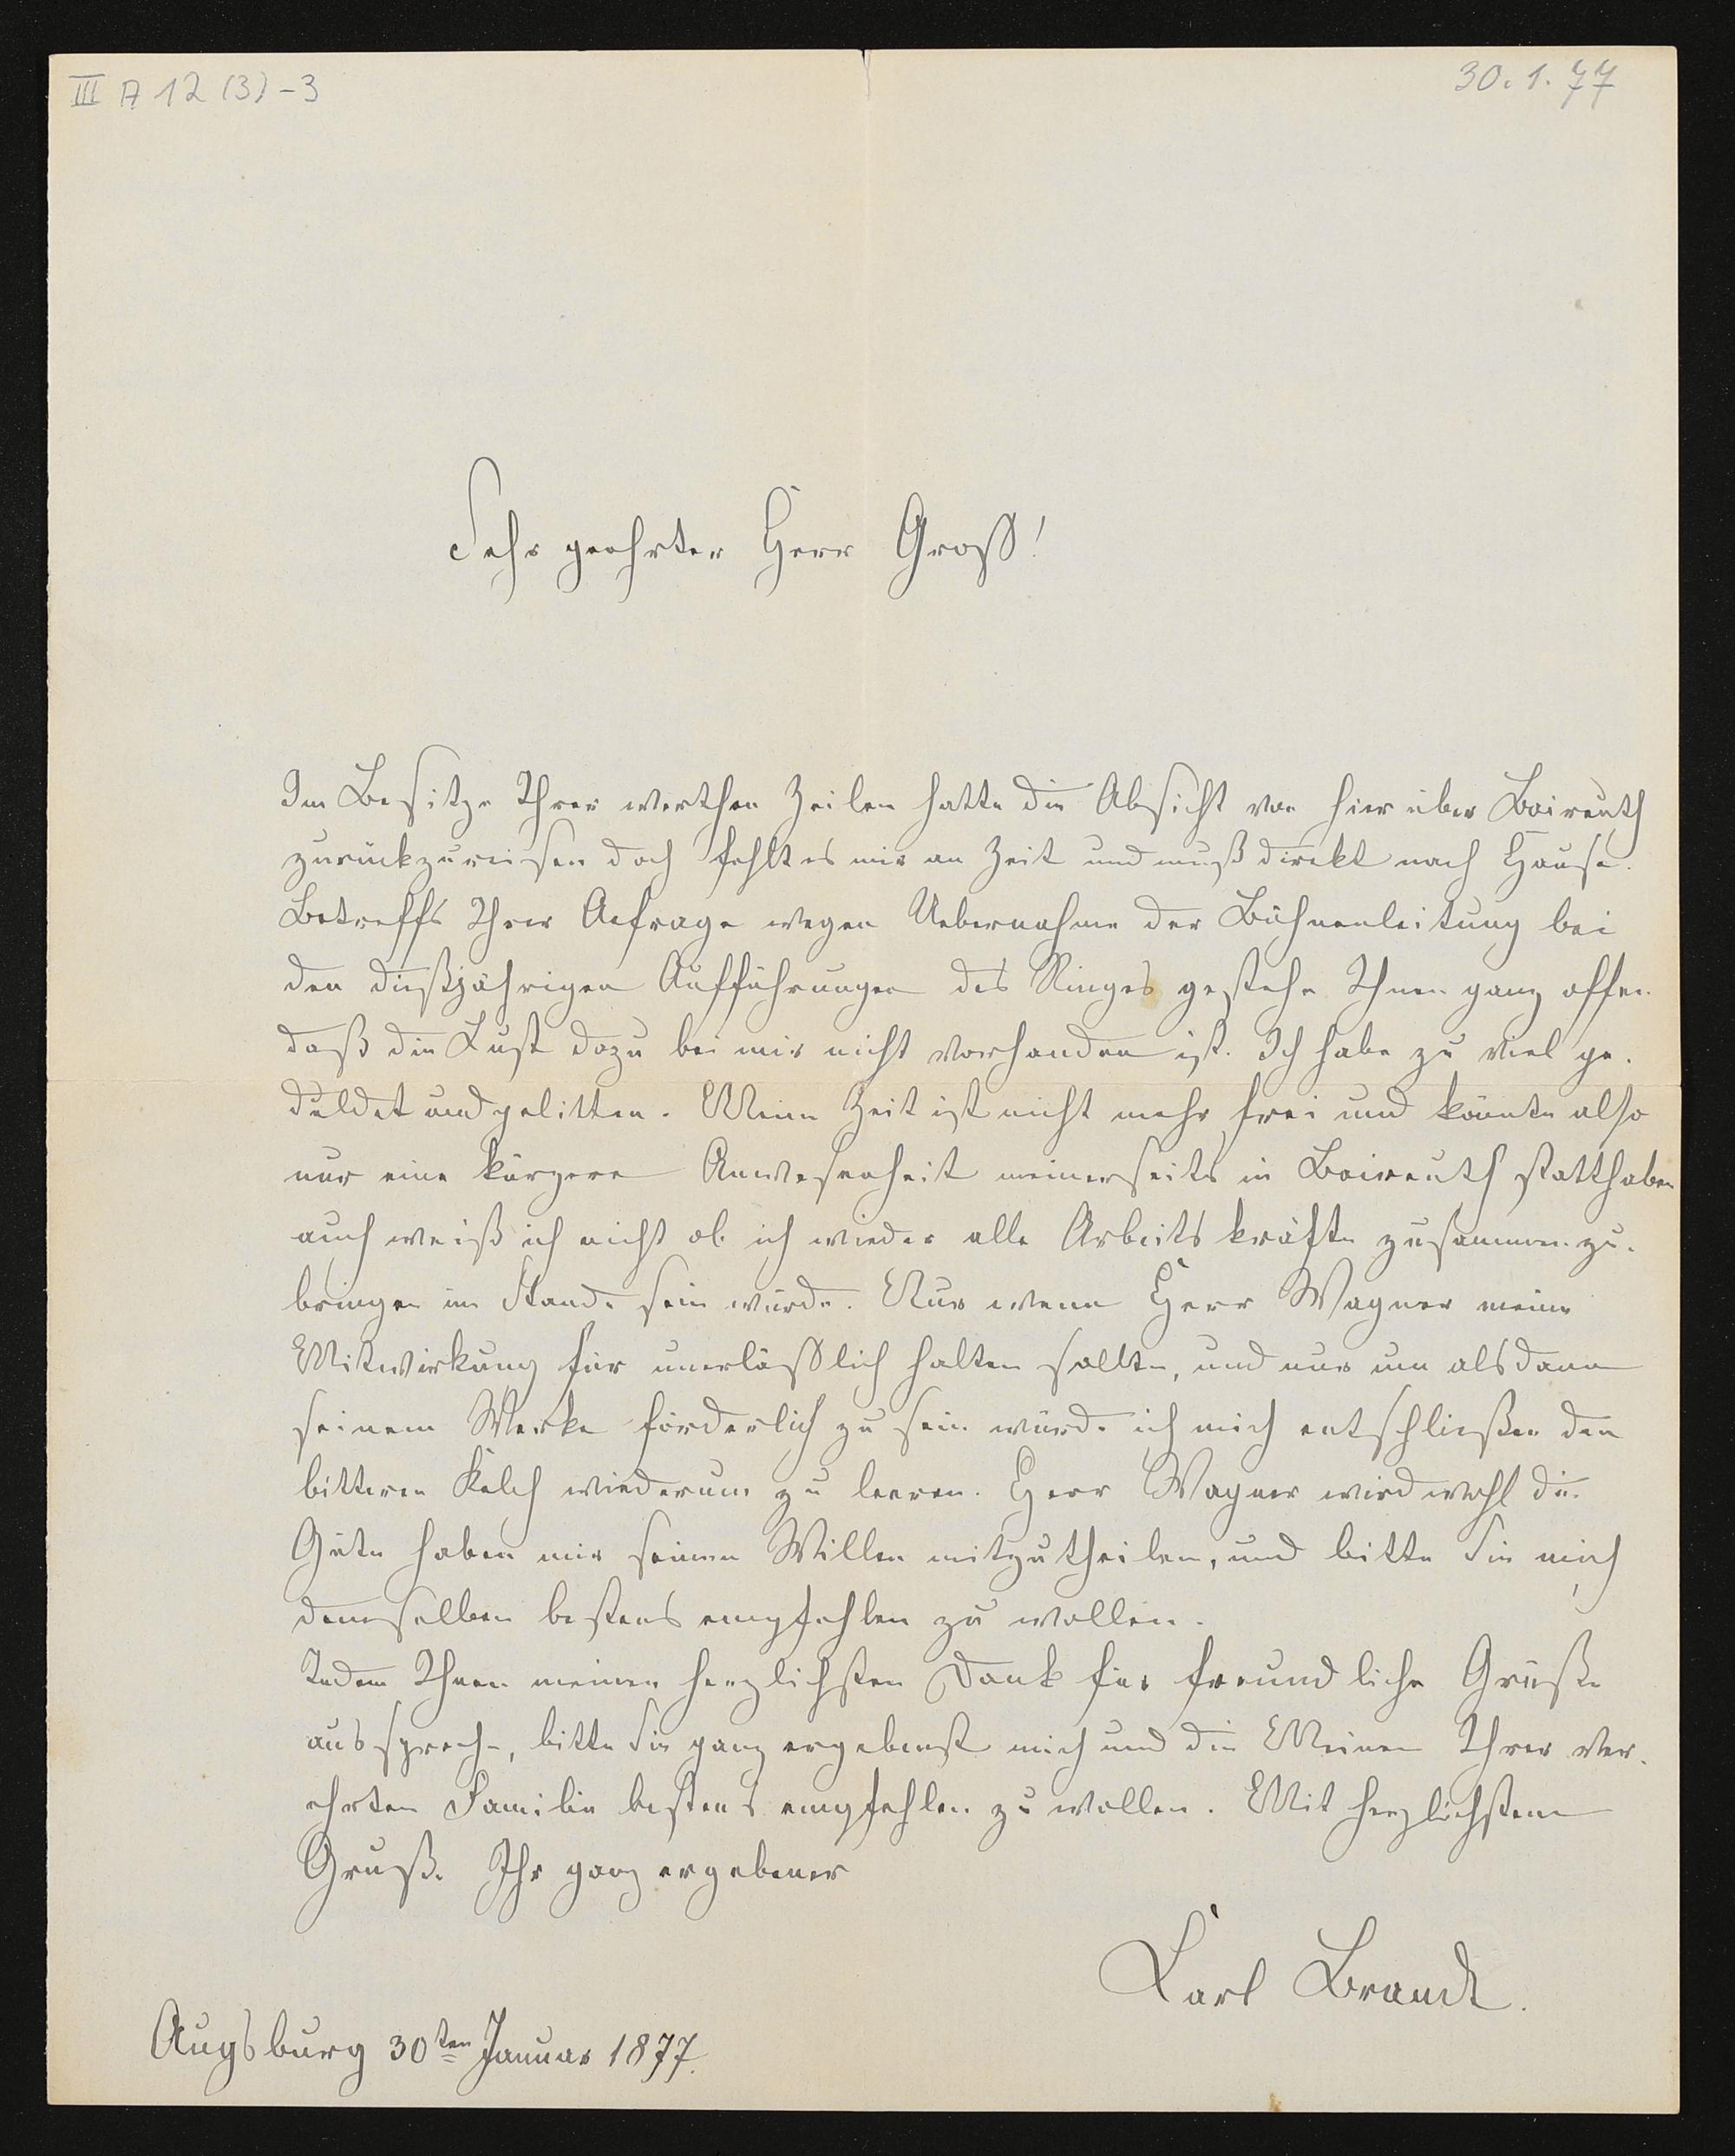 III A 12 (3) - 3
30. 1. 77
Sehr geehrter Herr Gross!
Im Besitze Ihrer werthen Zeilen hatte die Absicht von hier über Baireuth
zurückzureisen doch fehlt es mir an Zeit und muß direkt nach Hause.
Betreffs Ihrer Anfrage wegen Uebernahme der Bühnenleitung bei
den dießjährigen Aufführungen des Ringes gestehe Ihnen ganz offen
daß die Lust dazu bei mir nicht vorhanden ist. Ich habe zu viel ge-
duldet und gelitten. Meine Zeit ist nicht mehr frei und könnte also
nur eine kürzere Anwesenheit meinerseits in Baireuth statthaben
auch weiß ich nicht ob ich wieder alle Arbeitskräfte zusammen zu-
bringen im Stande sein würde. Nur wenn Herr Wagner meine
Mitwirkung für unerlässlich halten sollte, und nur um alsdann
seinem Werke förderlich zu sein würde ich mich entschließen den
bitteren Kelch wiederum zu leeren. Herr Wagner wird wohl die
Güte haben mir seinen Willen mitzutheilen, und bitte Sie mich
demselben bestens empfehlen zu wollen.
Indem Ihnen meinen herzlichsten Dank für freundliche Grüße
ausspreche, bitte Sie ganz ergebenst mich und die Meinen Ihrer ver-
ehrten Familie bestens empfehlen zu wollen. Mit herzlichstem
Gruße Ihr ganz ergebener
Karl Brandt.
Augsburg 30ten Januar 1877.